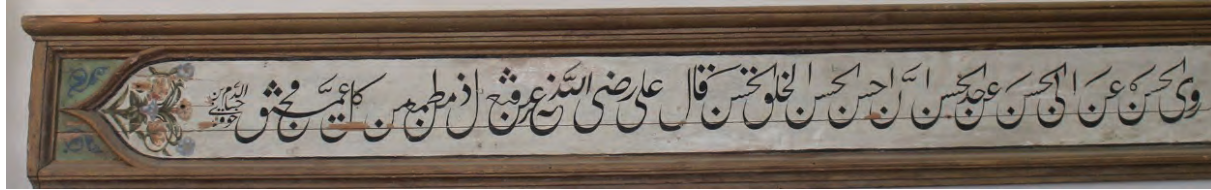 روى الحسن عن ابى الحسن عن جد الحسن ان احسن الحسن الخلق الحسن قال على رضى الله عنه عز من قنع ذل من طمع من